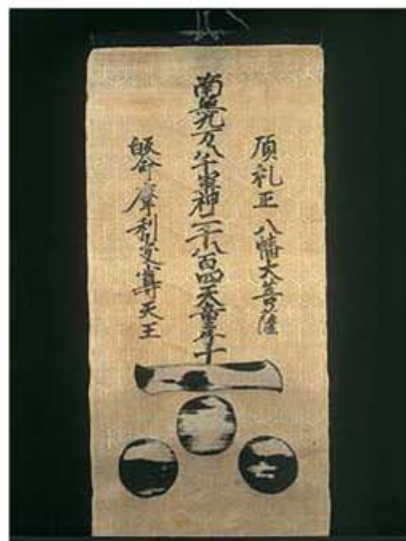 頂礼正八幡大菩薩
南無九万八千軍神二千八百四天童子十
皈命摩利支尊天王